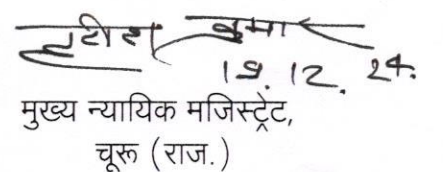 कुमार
19.12.24.
मुख्य न्यायिक मजिस्ट्रेट,
चूरू (राज.)